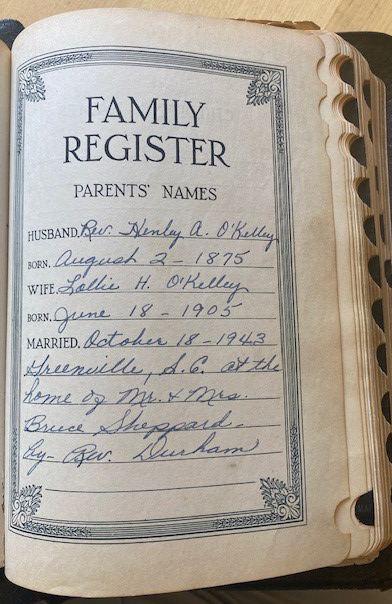 FAMILY
REGISTER
PARENTS' NAMES
HUSBAND, Rev. Henley A. O'Kelley
BORN, August 2 - 1875
WIFE, Lollie H. O'Kelley
BORN, June 18 - 1905
MARRIED, October 18 - 1943
Greenville, S.C. at the
home of Mr. & Mrs.
Bruce Sheppard -
by - Rev. Durham